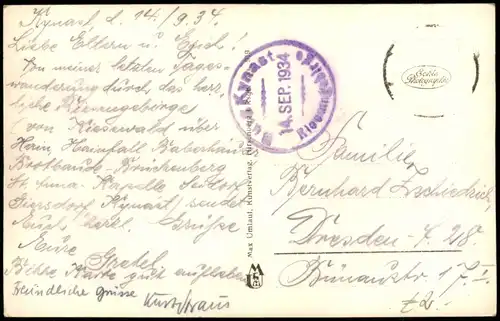 Kynast, d. 14/9.34.
Liebe Eltern u. Erich!
Von meiner letzten Tages-
wanderung durch das herr-
liche Riesengebirge
(von Kiesewald über
Hain, Hainfall, Baberhäus.
Brotbaude, Brückenberg
St. Anna-Kapelle, Seidorf
Giersdorf, Kynast) sendet
Euch herzl. Grüsse
Eure Gretel
Bitte Karte gut aufheben
Freundliche Grüsse
Kurt
Burg Kynast
14. SEP. 1934
Max Umlauf, Kunstverlag,
Echte
Photographie
Familie
Bernhard Zschiedrich
Dresden-A. 28.
Bünaustr. 17